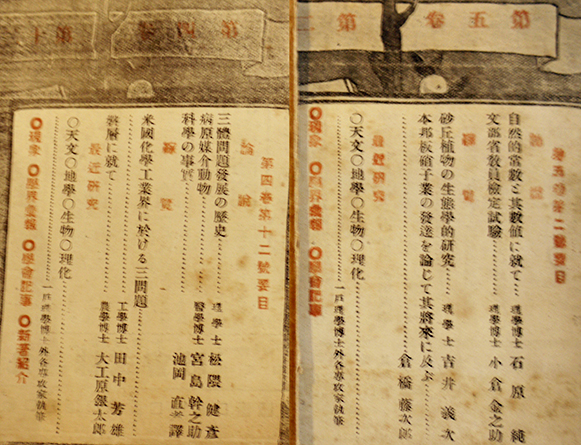 第五卷 第二
第五卷第二號要目
論說
自然的常數と其數値に就て 理學博士 石原純
文部省敎員檢定試驗 理學博士 小倉金之助
雜覽
砂丘植物の生態學的硏究 理學士 吉井義次
本邦板硝子業の發達を論じて其將來に及ぶ 倉橋藤次郎
最近硏究
○天文○地學○生物○理化
一戶理學博士外各專攻家執筆
○現象 ○學界彙報 ○學會記事
第四卷 第十
第四卷第十二號要目
論說
三體問題發展の歷史 理學士 松隈健彥
病原媒介動物 醫學博士 宮島幹之助
科學の事實 池岡直孝譯
雜覽
米國化學工業界に於ける三問題 工學博士 田中芳雄
層に就て 農學博士 大工原銀太郎
最近硏究
○天文○地學○生物○理化
一戶理學博士外各專攻家執筆
○現象 ○學界彙報 ○學會記事 ○新著紹介